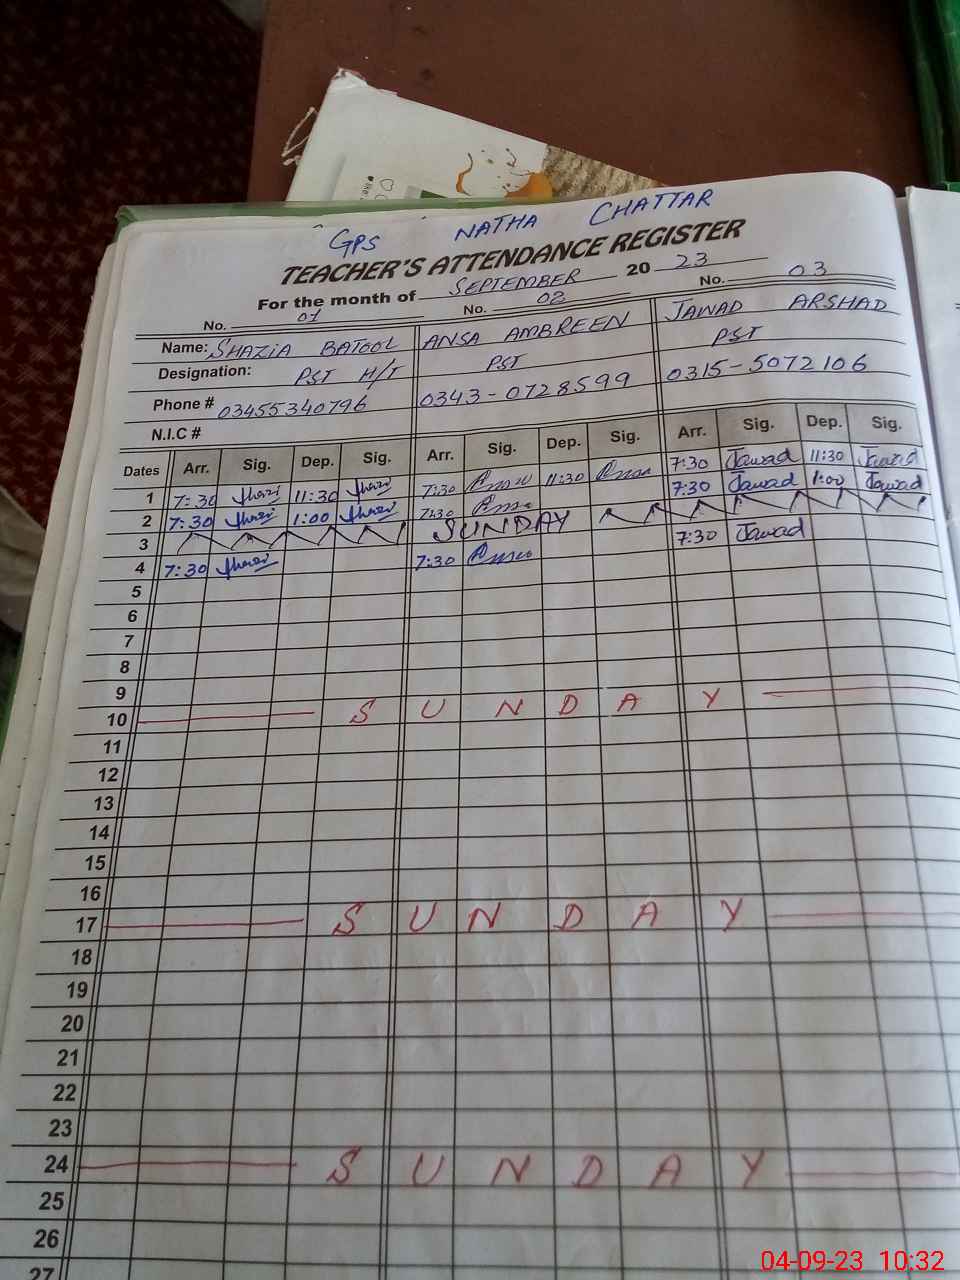 GPS NATHA CHATTAR
TEACHER'S ATTENDANCE REGISTER
For the month of SEPTEMBER 20 23
No. 01 No. 02 No. 03
Name: SHAZIA BATOOL ANSA AMBREEN JAWAD ARSHAD
Designation: PST H/T PST PST
Phone # 03455340796 0343-0728599 0315-5072106
N.I.C #
Dates Arr. Sig. Dep. Sig. Arr. Sig. Dep. Sig. Arr. Sig. Dep. Sig.
1 7:30 11:30 7:30 11:30 7:30 Jawad 11:30 Jawad
2 7:30 1:00 7:30 7:30 Jawad 1:00 Jawad
3 SUNDAY
4 7:30 7:30 7:30 Jawad
5
6
7
8
9
10 SUNDAY
11
12
13
14
15
16
17 SUNDAY
18
19
20
21
22
23
24 SUNDAY
25
26
27
04-09-23 10:32